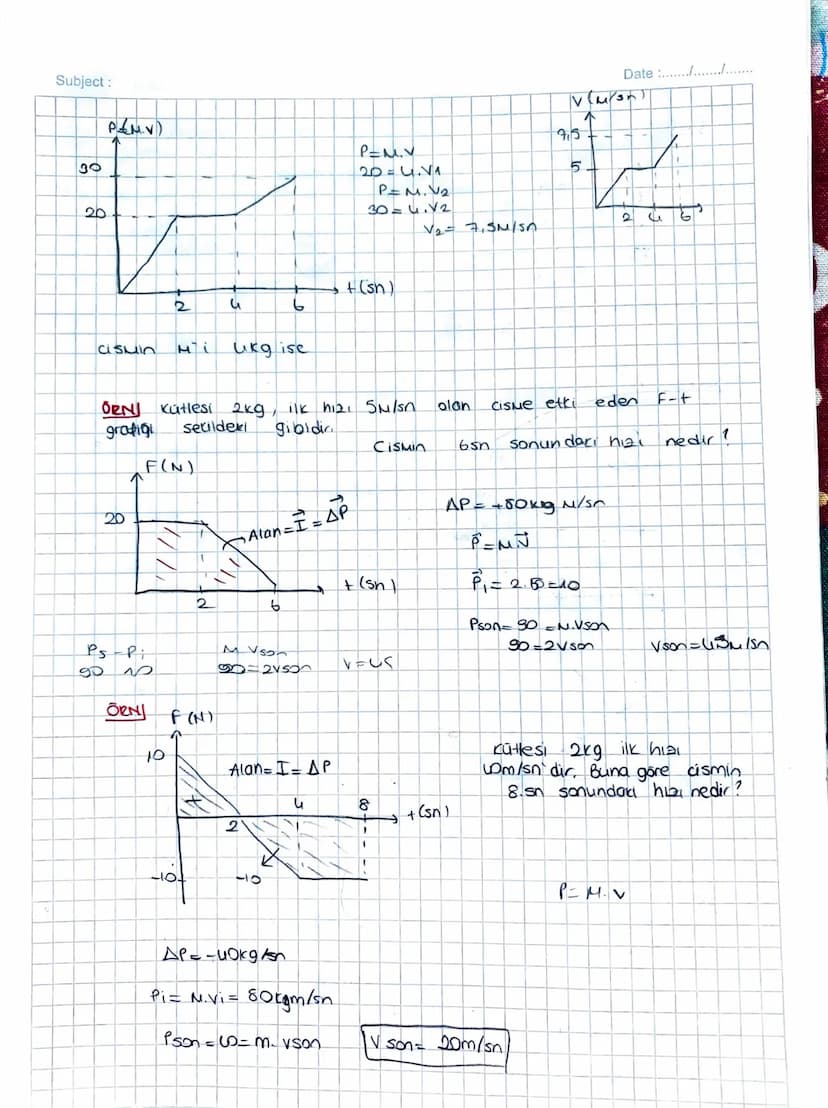 Subject :
Date :......./......./.......
P(M.V)
30
20
2
4
6
t(sn)
P=M.V
20=4.V1
P=M.V2
30=4.V2
V2= 7,5M/sn
V(M/sn)
7,5
5
2 4 6
cismin M'i 4kg ise
ÖRN/ Kütlesi 2kg, ilk hızı 5M/sn olan cisme etki eden F-t
grafiği şekildeki gibidir.
Cismin 6sn sonundaki hızı nedir?
F(N)
20
Alan=I=ΔP
2
6
t(sn)
ΔP=+80kg M/sn
P=MV
P1= 2.5=10
Pson= 90 =M.Vson
90=2Vson
Vson=45M/sn
Ps-Pi
90 10
M Vson
90=2Vson
V=45
ÖRN/
F(N)
10
+
Alan= I= ΔP
2
4
8
t(sn)
-10
-10
Kütlesi 2kg ilk hızı
40m/sn'dir. Buna göre cismin
8.sn sonundaki hızı nedir?
P= M.V
ΔP=-40kg/sn
Pi= M.Vi= 80kgm/sn
Pson=40=m.vson
V son= 20m/sn